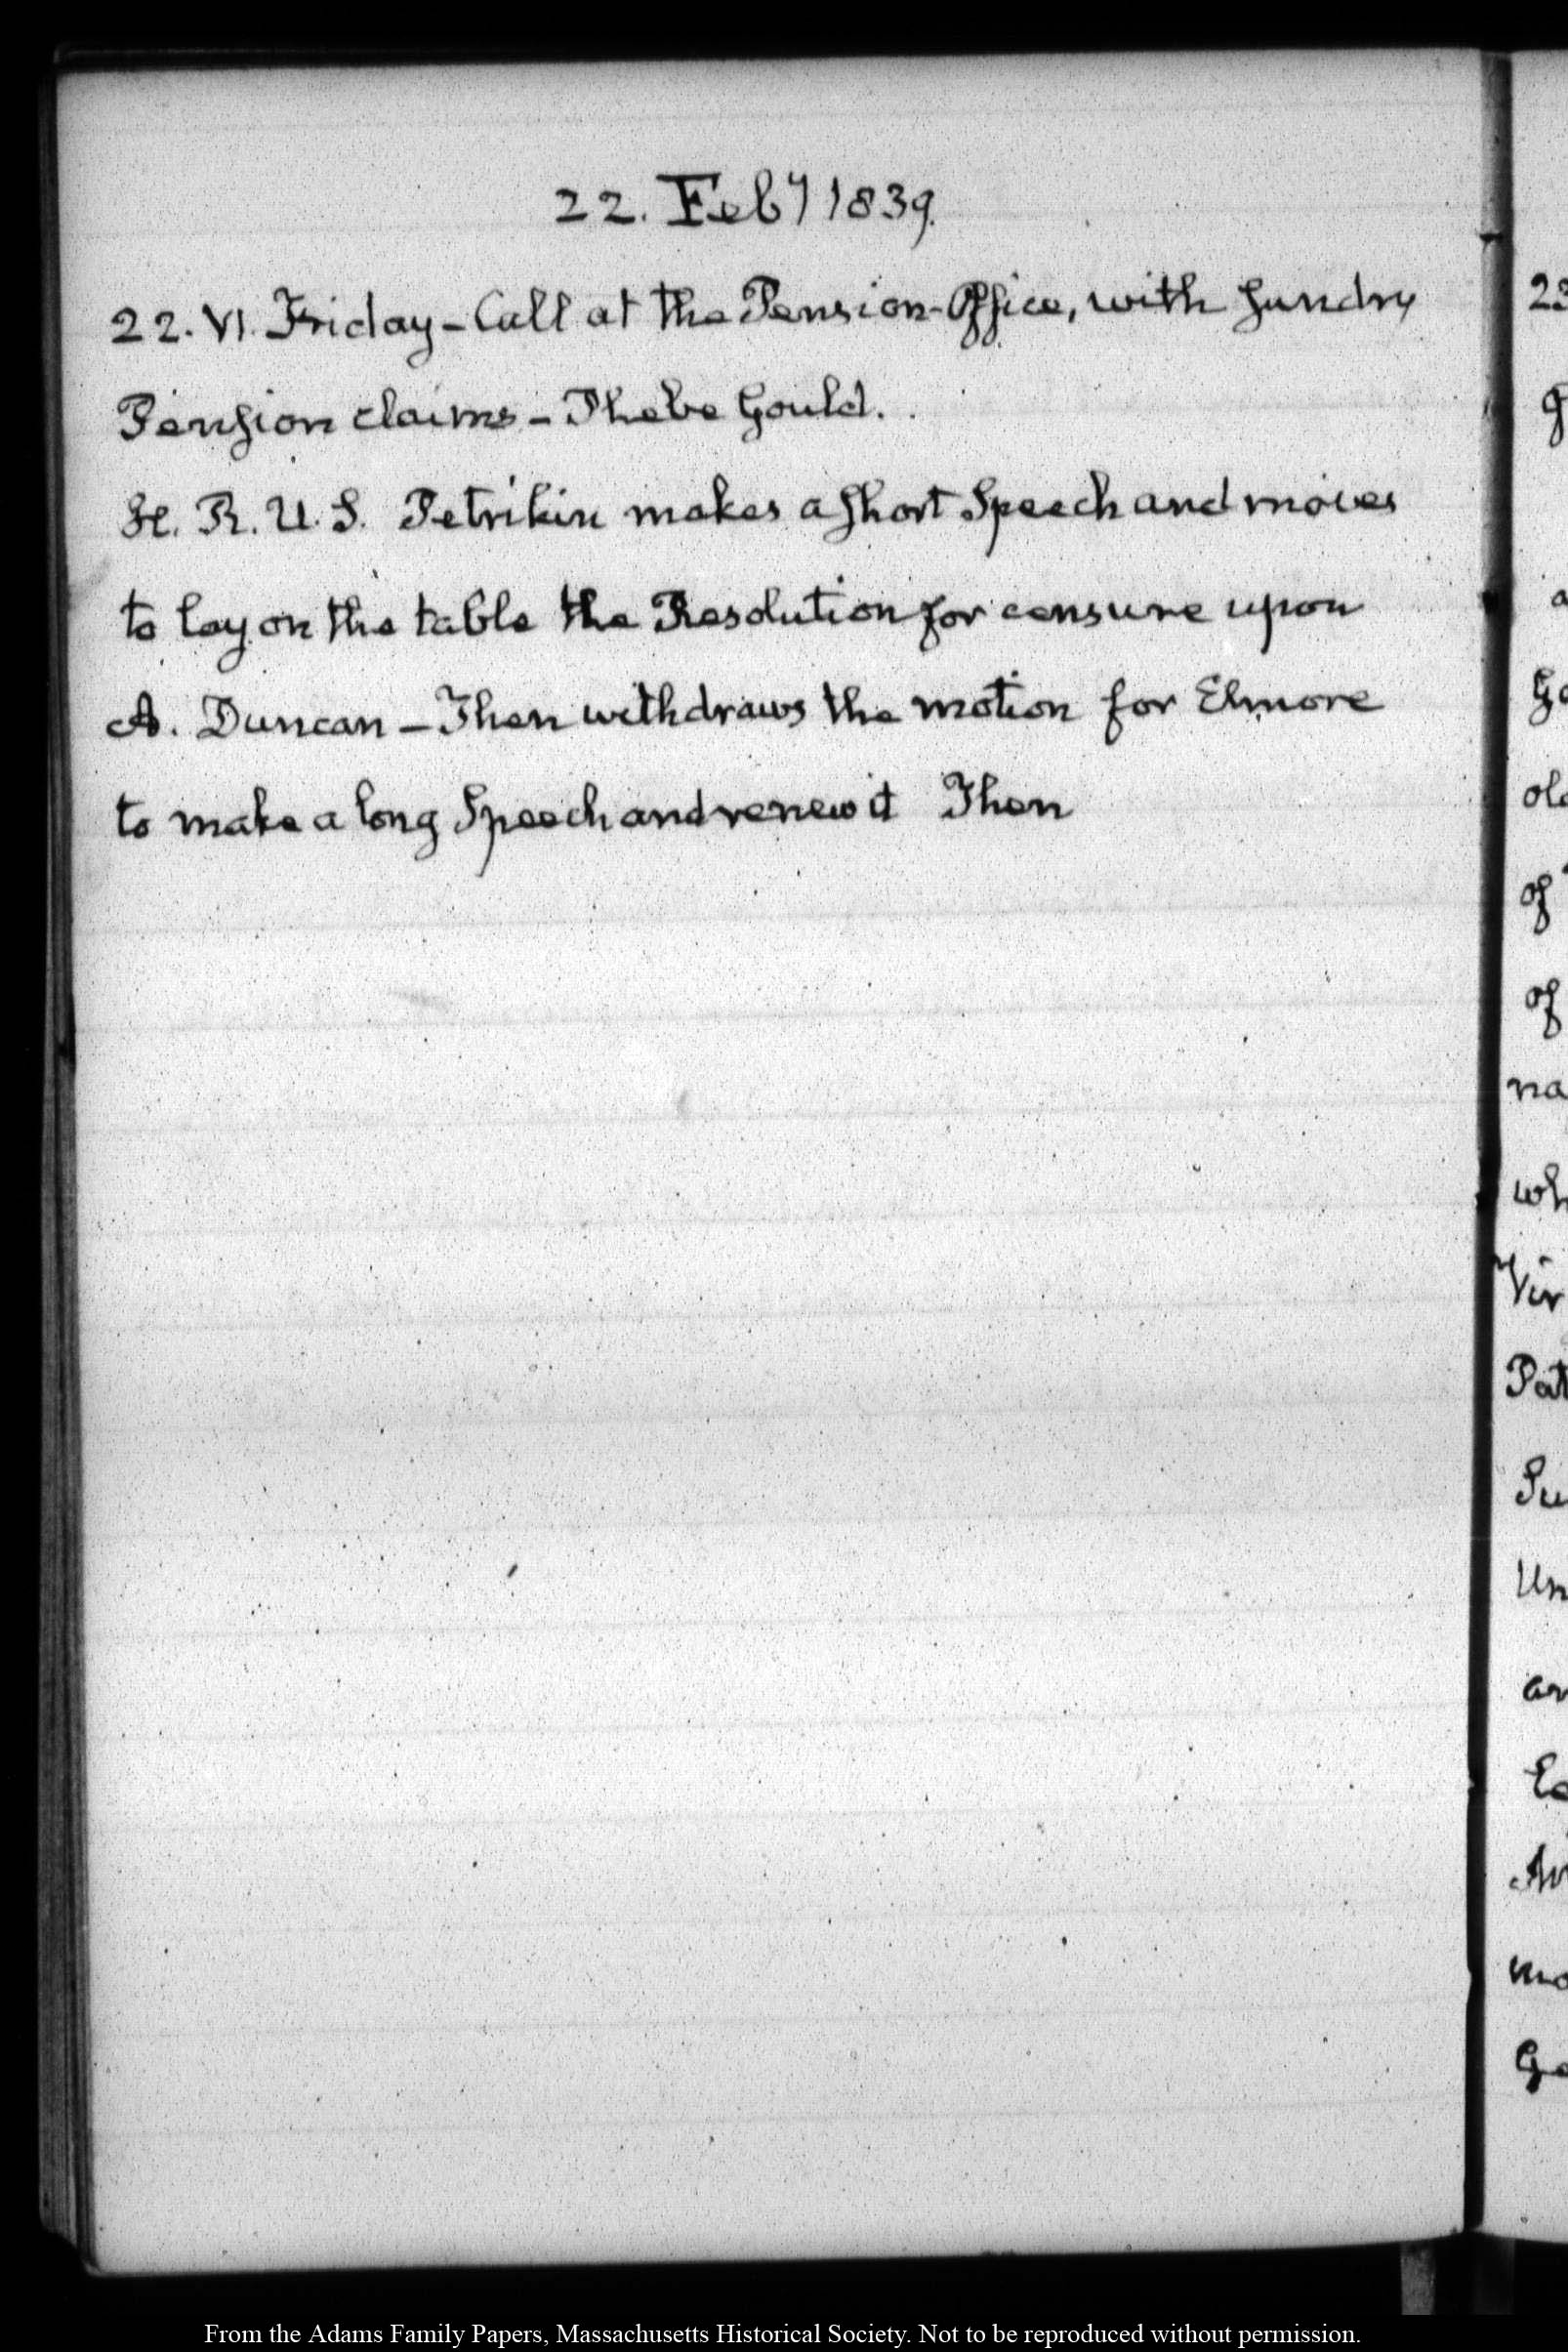 22. Feby 1839.
22. VI. Friday - Call at the Pension-Office, with Sundry
Pension claims - Phebe Gould.
H. R. U. S. Petrikin makes a Short Speech and moves
to lay on the table the Resolution for censure upon
A. Duncan - Then withdraws the motion for Elmore
to make a long Speech and renew it Then
22
g
a
Go
old
of
of
na
wh
Vir
Pat
Su
Un
an
Ea
mo
Ge
From the Adams Family Papers, Massachusetts Historical Society. Not to be reproduced without permission.